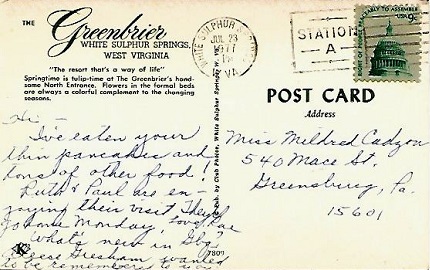 THE
Greenbrier
WHITE SULPHUR SPRINGS,
WEST VIRGINIA
"The resort that's a way of life"
Springtime is tulip-time at The Greenbrier's hand-
some North Entrance. Flowers in the formal beds
are always a colorful complement to the changing
seasons.
WHITE SULPHUR
JUL 23
1977
VA
STATION
A
RIGHT OF PEOPLE PEACEABLY TO ASSEMBLE
USA 9c
POST CARD
Address
Hi –
I've eaten your
thin pancakes and
tons of other food!
Ruth & Paul are en-
joying their visit. They
Monday, Love, Rae
What's new in Gbg?
Gresham wanted
to be remembered to you
Miss Mildred
540 Mace St.
Greensburg, Pa.
15601
Pub. by
Photos, White Sulphur Springs
K
7809